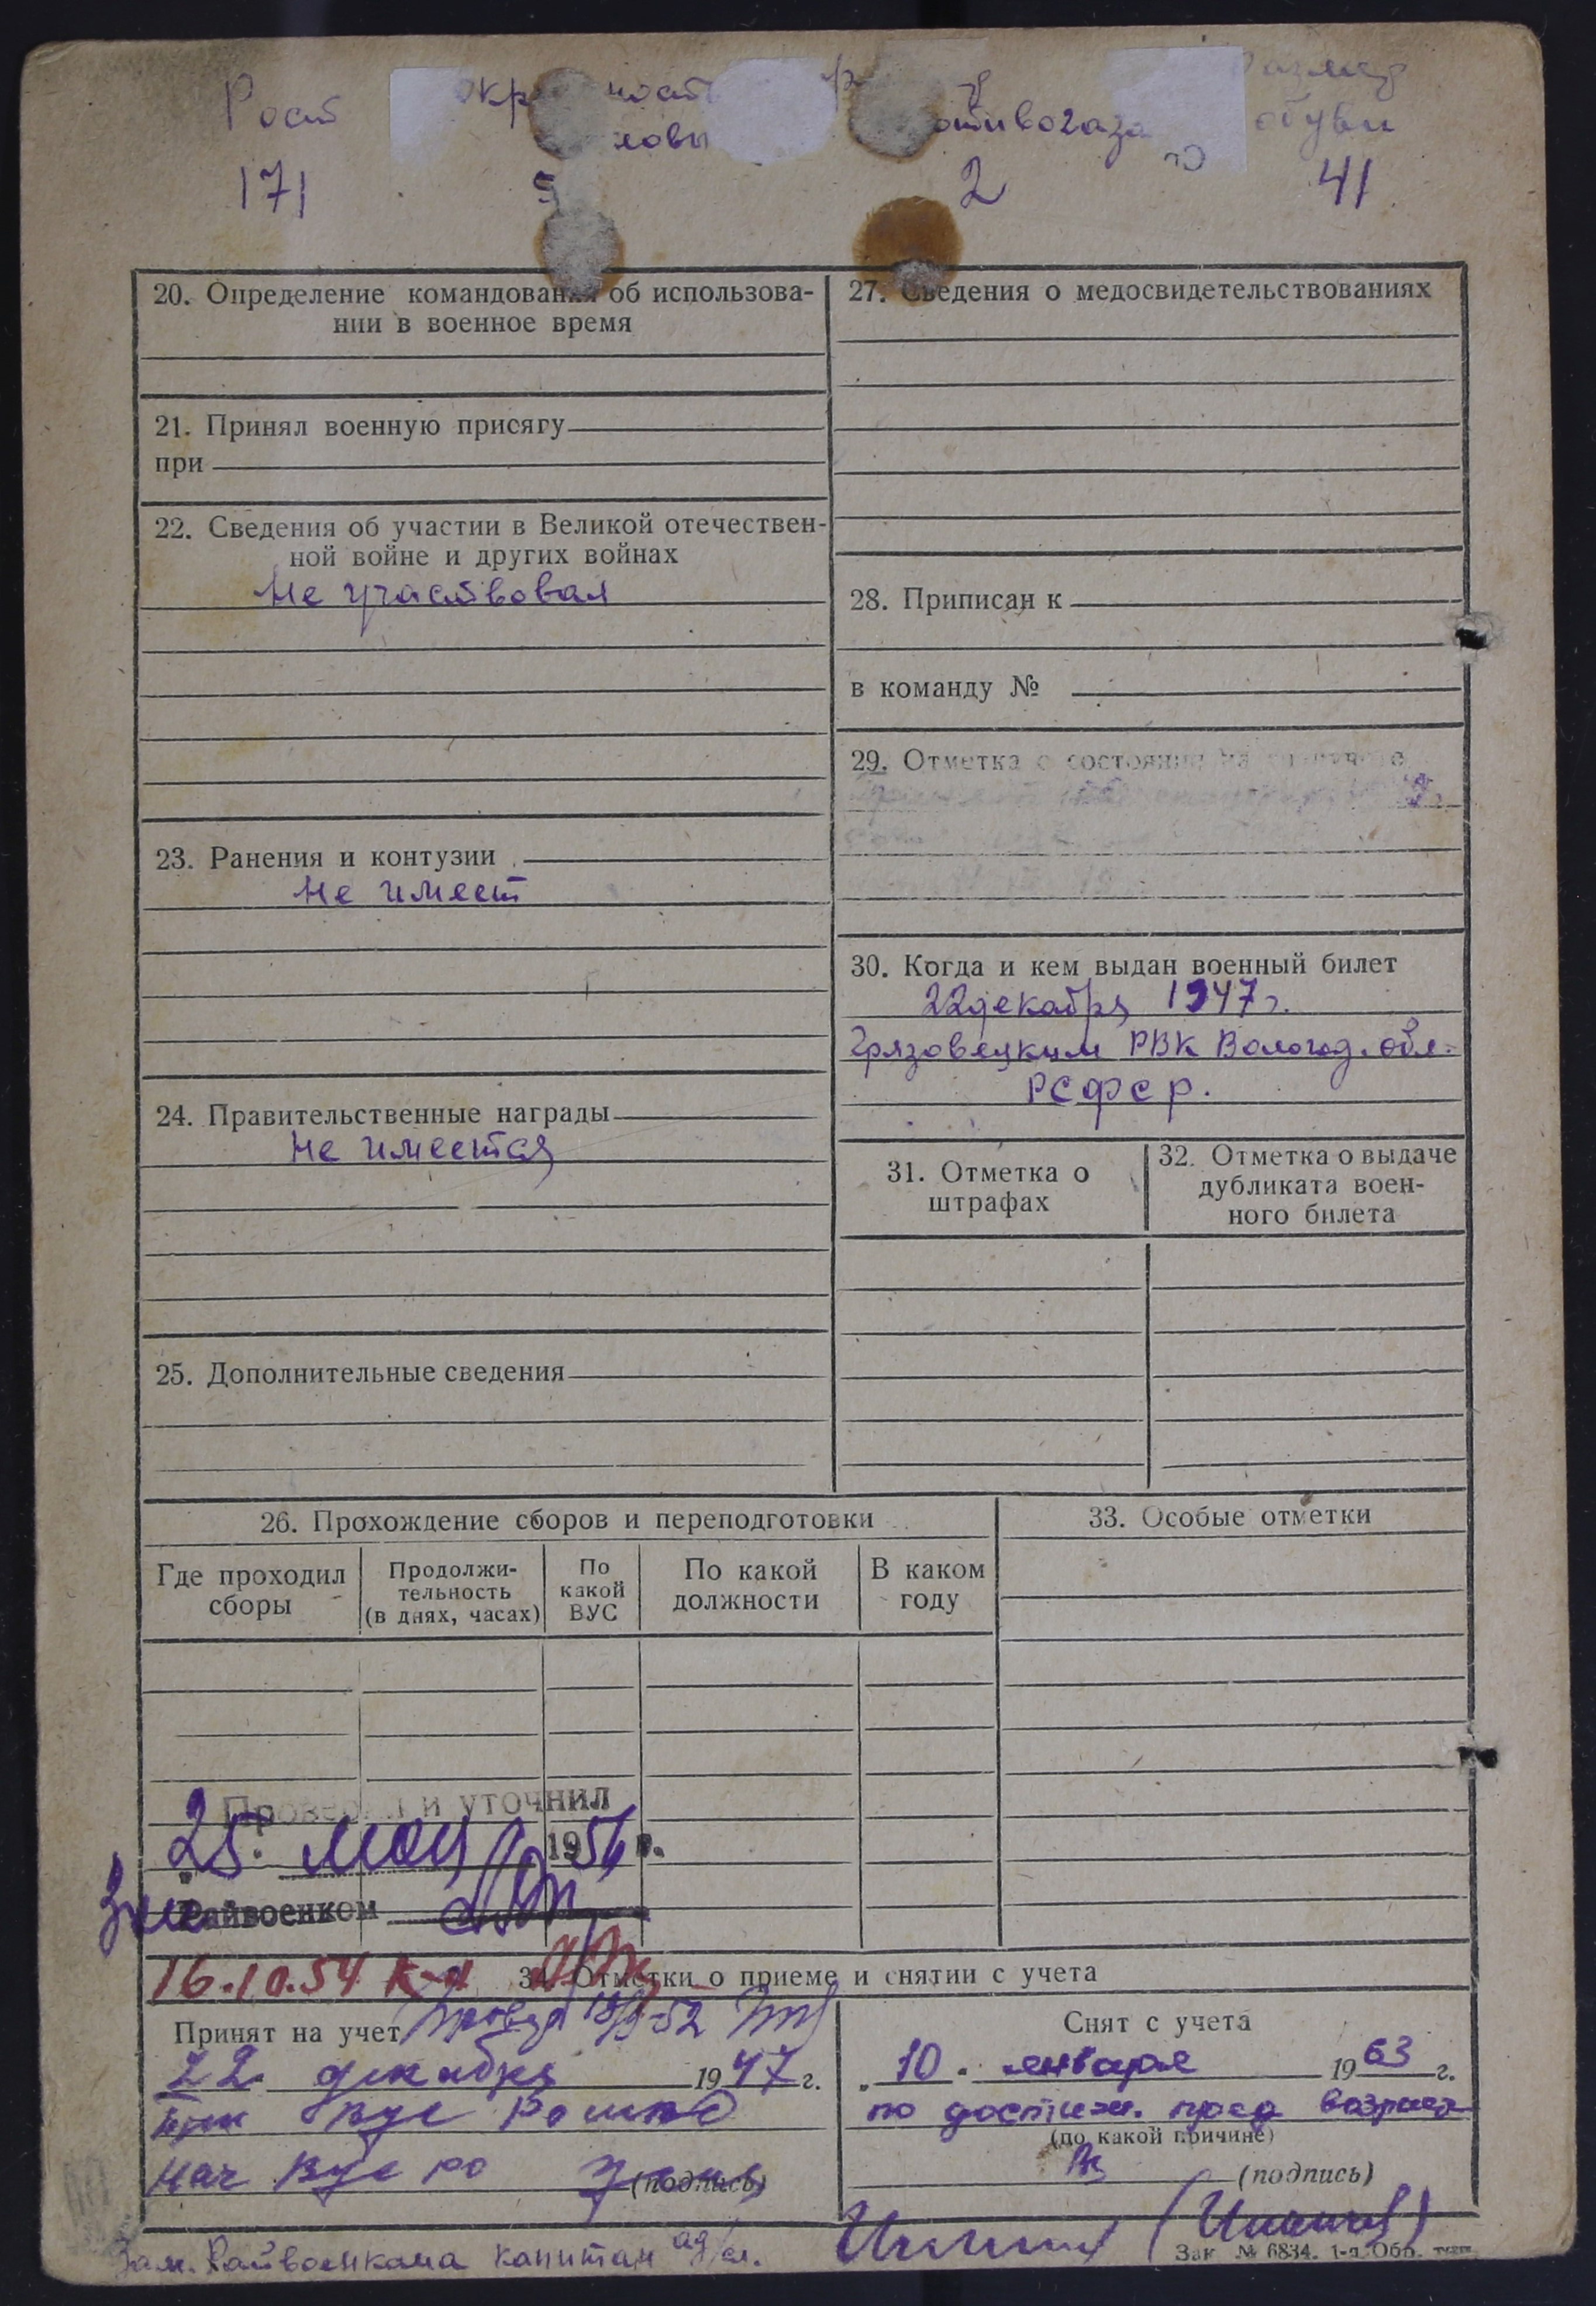 Рост
171
2
обуви
41
20. Определение командования об использова-
нии в военное время
21. Принял военную присягу
при
22. Сведения об участии в Великой отечествен-
ной войне и других войнах
Не участвовал
23. Ранения и контузии
Не имеет
24. Правительственные награды
Не имеется
25. Дополнительные сведения
27. Сведения о медосвидетельствованиях
28. Приписан к
в команду №
29. Отметка о состоянии на
30. Когда и кем выдан военный билет
22 декабря 1947 г.
Грязовецким РВК Вологод. обл.
РСФСР.
31. Отметка о
штрафах
32. Отметка о выдаче
дубликата воен-
ного билета
26. Прохождение сборов и переподготовки
Где проходил
сборы
Продолжи-
тельность
(в днях, часах)
По
какой
ВУС
По какой
должности
В каком
году
33. Особые отметки
Проверил и уточнил
25. мая 1956 г.
Райвоенком
16.10.54 к-н
34. Отметки о приеме и снятии с учета
Принят на учет
22 декабря 1947 г.
Нач
(подпись)
Снят с учета
„10. января 1963 г.
по достиж. пред возраста
(по какой причине)
(подпись)
Зам. Райвоенкома капитан ад/сл.
Зак № 6834. 1-я Обр. тип.